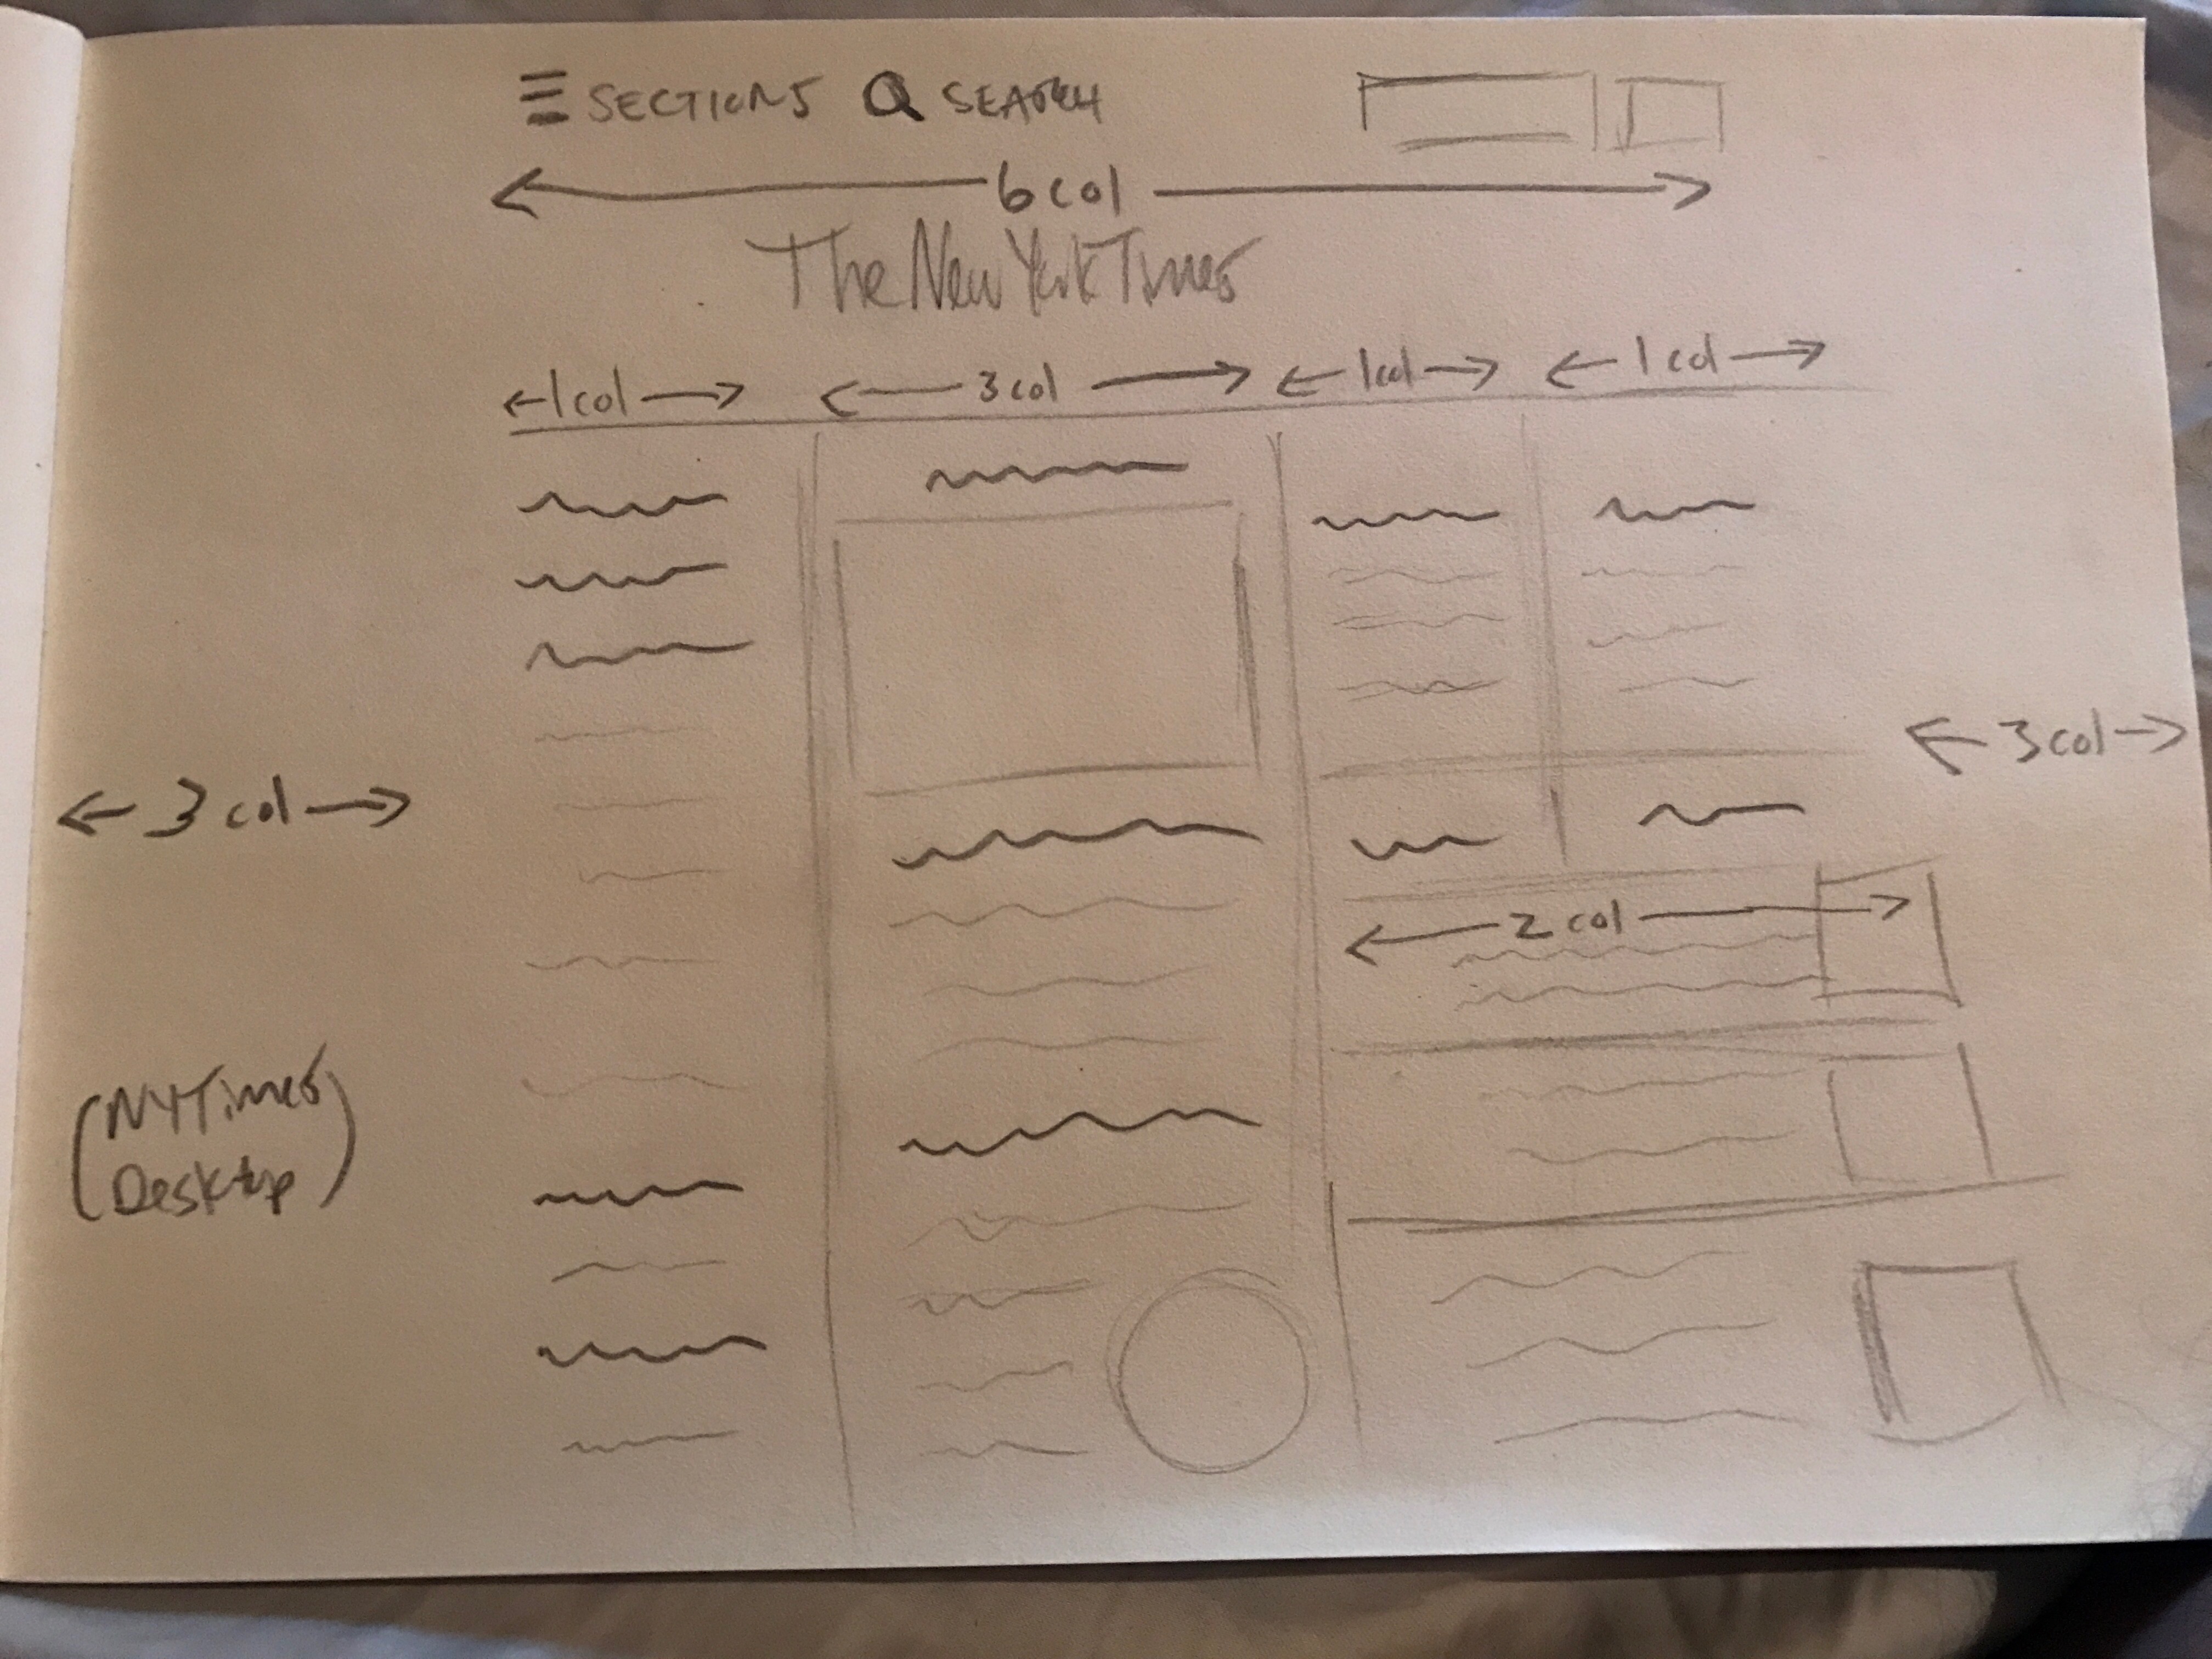 SECTIONS SEARCH
6 col
The New York Times
1 col 3 col 1 col 1 col
3 col
3 col
2 col
(NYTimes
Desktop)